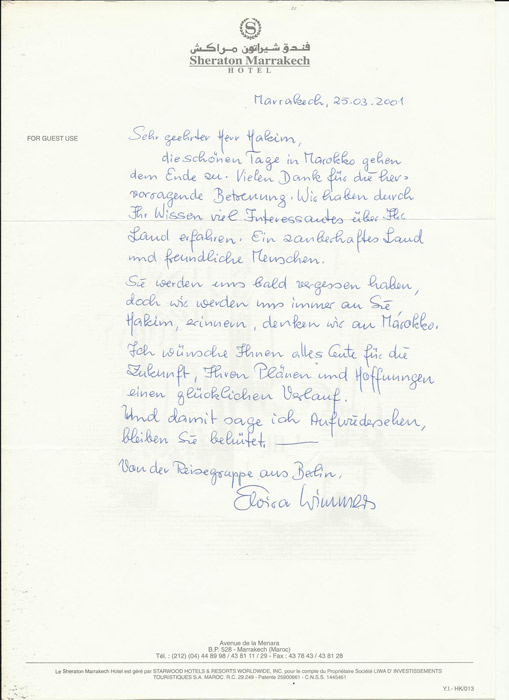 S
فندق شيراتون مراكش
Sheraton Marrakech
HOTEL
Marrakech, 25.03.2001
FOR GUEST USE
Sehr geehrter Herr Hakim,
die schönen Tage in Marokko gehen
dem Ende zu. Vielen Dank für die her-
vorragende Betreuung. Wir haben durch
Ihr Wissen viel Interessantes über Ihr
Land erfahren. Ein zauberhaftes Land
und freundliche Menschen.
Sie werden uns bald vergessen haben,
doch wir werden uns immer an Sie
Hakim, erinnern, denken wir an Marokko.
Ich wünsche Ihnen alles Gute für die
Zukunft, Ihren Plänen und Hoffnungen
einen glücklichen Verlauf.
Und damit sage ich Aufwiedersehen,
bleiben Sie behütet. —
Von der Reisegruppe aus Berlin.
Wimmers
Avenue de la Menara
B.P. 528 - Marrakech (Maroc)
Tél. : (212) (04) 44 89 98 / 43 81 11 / 29 - Fax : 43 78 43 / 43 81 28
Le Sheraton Marrakech Hotel est géré par STARWOOD HOTELS & RESORTS WORLDWIDE, INC. pour le compte du Propriétaire Société LIWA D' INVESTISSEMENTS
TOURISTIQUES S.A. MAROC, R.C. 29.249 - Patente 25900661 - C.N.S.S. 1445461
Y.I.- HK/013